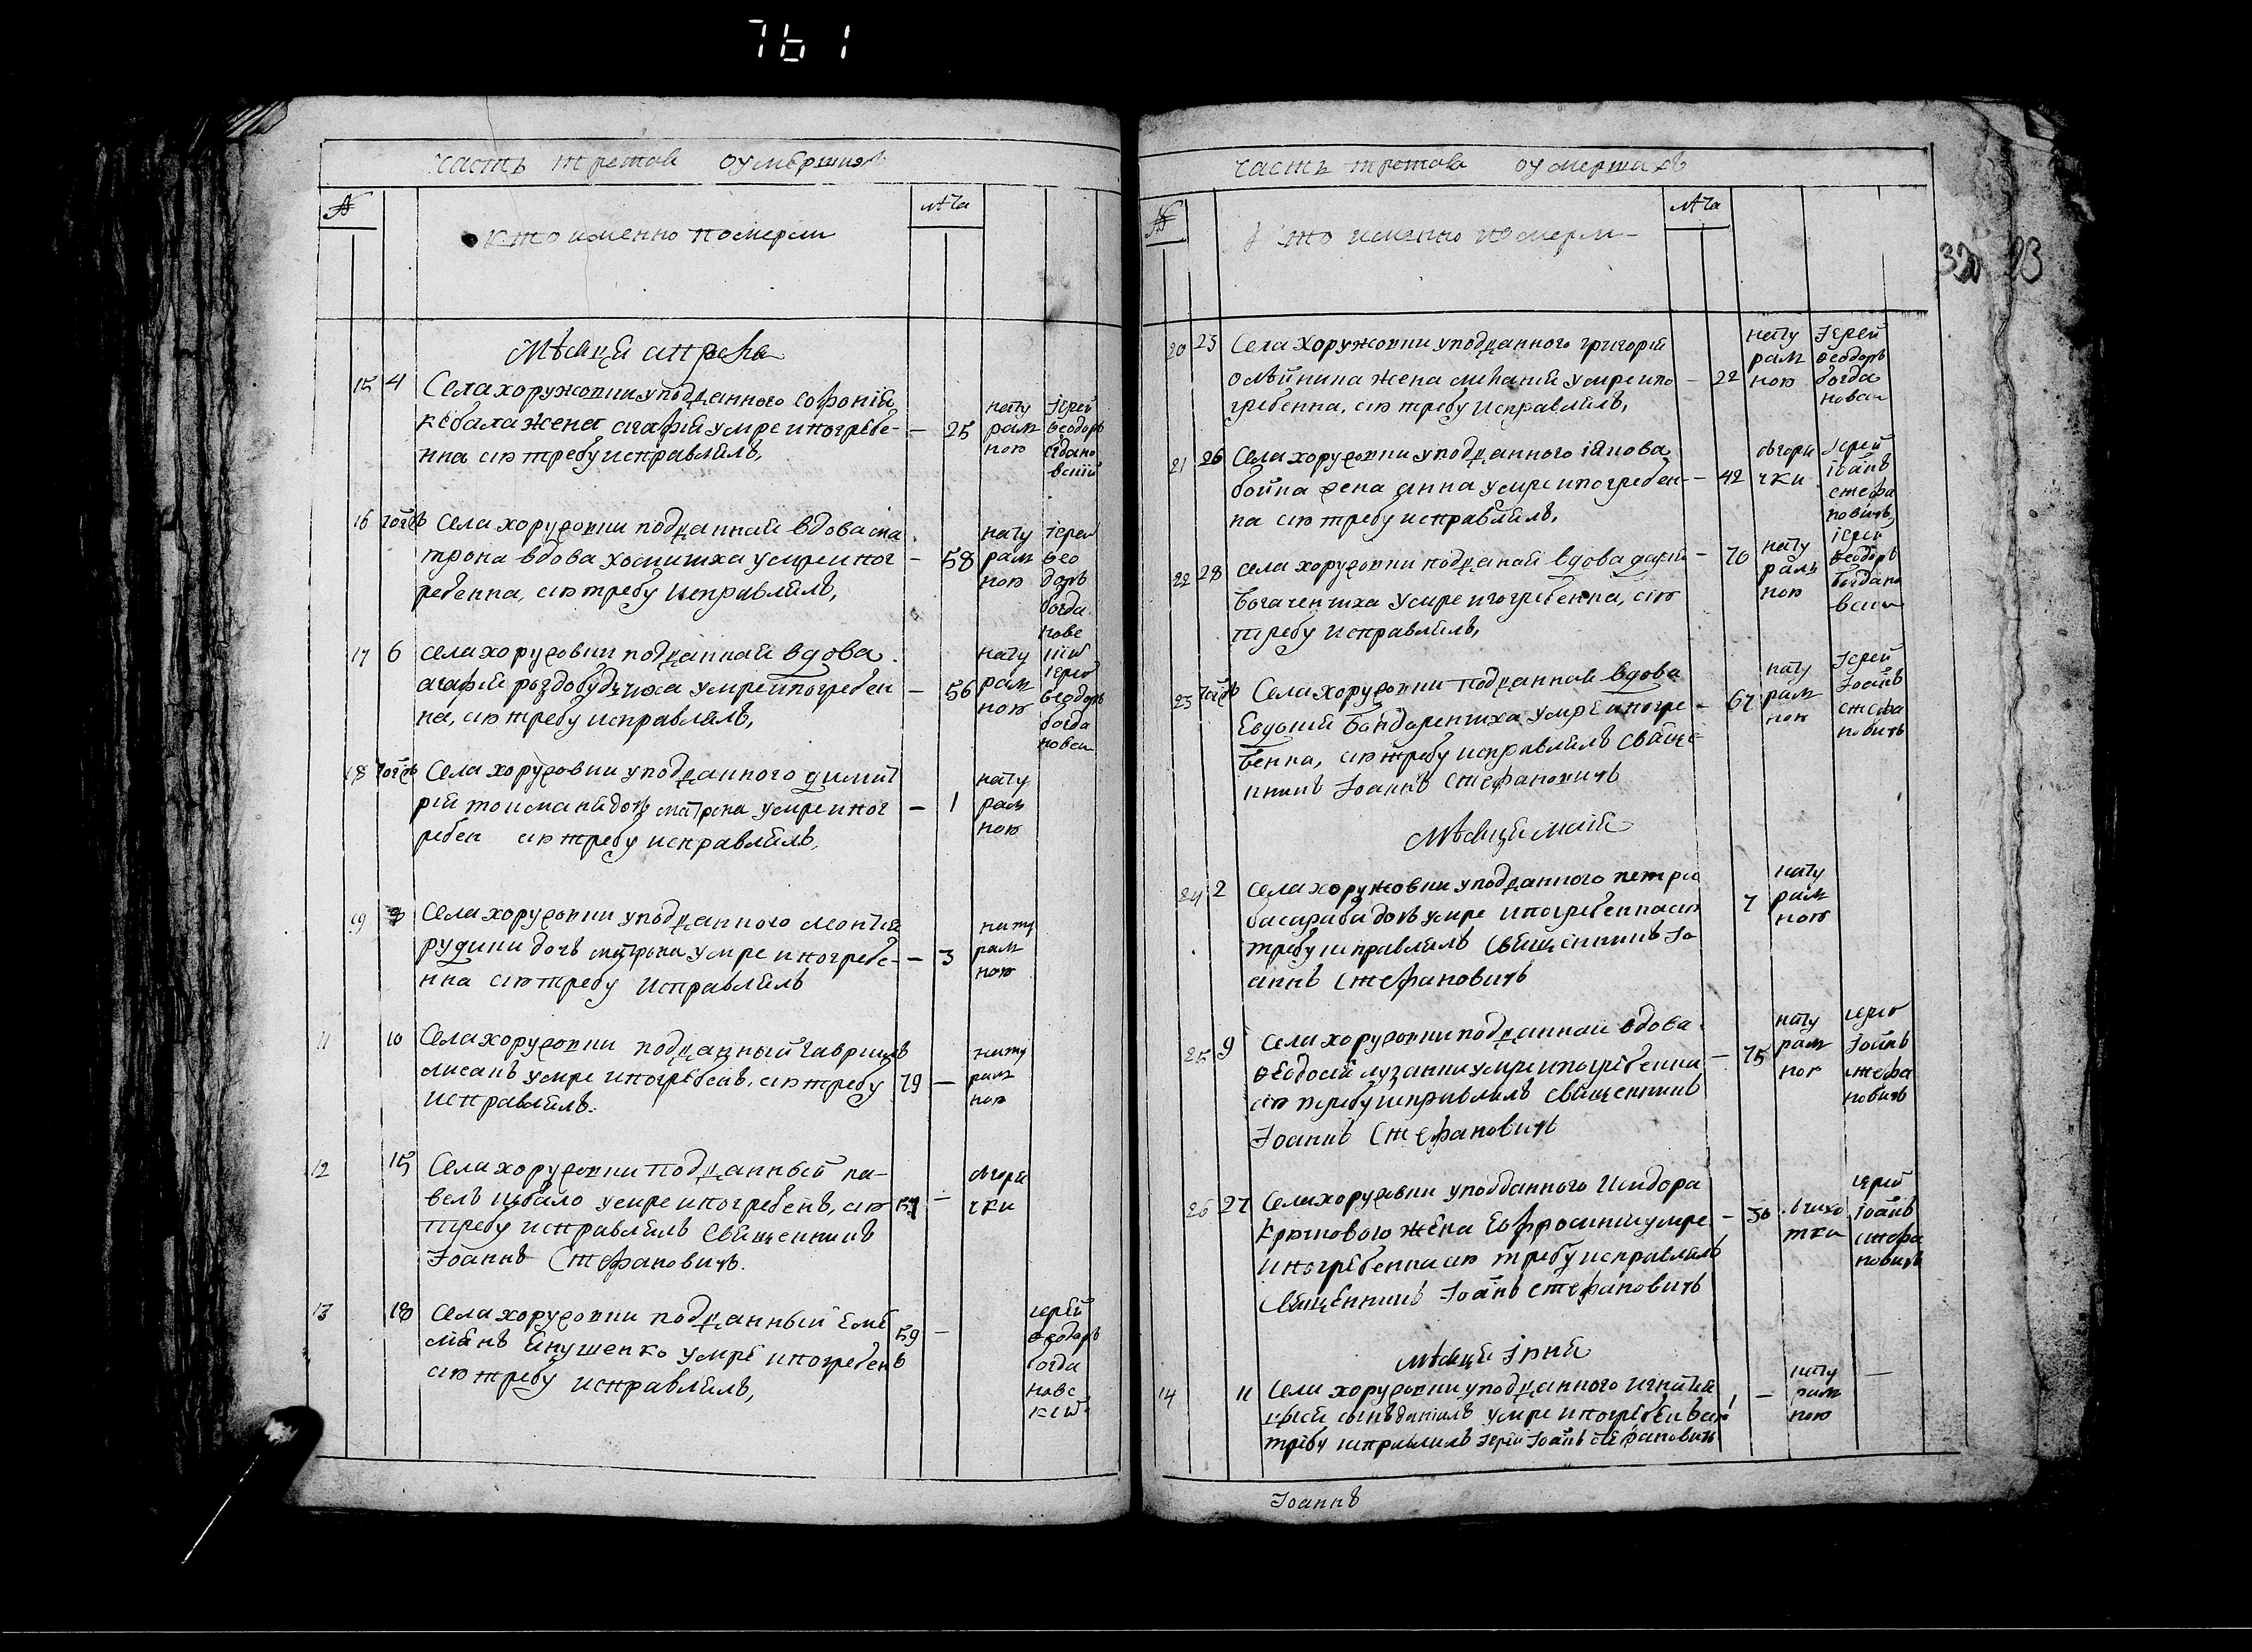 761
часть третая оумершихъ
№
лѣта
кто именно померли
Мѣсяцъ априль
15 4 Села хоружовки уподданного софоній
кебала жена агафія умре ипогребе-
нна сію требу исправлялъ,
— 25
нату
рал
ною
Іерей
Феодоръ
богдано
вскій
16 тогожъ Села хоружовки подданная вдова ма
трона вдова хомишиха умре ипог
ребенна, сію требу исправлялъ,
— 58
нату
рал
ною
іерей
Фео
доръ
богда
новс
кій
17 6 села хоружовки подданная вдова
агафія роздобудчиха умре ипогребен
на, сію требу исправлялъ,
— 56
нату
рал
ною
іерей
Феодоръ
богда
новски
18 тогожъ Села хоружовки уподданного димит
рія дочь матрона умре ипог
ребен сію требу исправлялъ,
— 1
нату
рал
ною
19 Села хоружовки уподданного леонтія
рудики дочь матрона умре ипогребе-
нна сію требу исправлялъ
— 3
нату
рал
ною
11 10 Села хоружовки подданный гавриилъ
лисакъ умре ипогребенъ, сію требу
исправлялъ.
79 —
нату
рал
ною
12 15 Села хоружовки подданный па-
велъ цѣбало умре ипогребенъ, сію
требу исправлялъ Священникъ
Іоаннъ Стефановичъ.
—
згоря
чки
13 18 села хоружовки подданный Еме
лянъ Янушенко умре ипогребенъ
сію требу исправлялъ,
59 —
іерей
Феодоръ
богда
новс
кій
часть третая оумершихъ
№
лѣта
кто именно померли
320 93
20 23 Села Хоружовки уподданного григорія
олѣйника жена меланія умре ипо
гребенна, сію требу исправлялъ,
— 22
нату
рал
ною
Іерей
Феодоръ
богда
новски
21 26 Села хоружовки уподданного іякова
бойка жена анна умре ипогребен-
на сію требу исправлялъ,
— 42
згоря
чки
Іерей
іоанъ
стефа
новичъ
22 28 села хоружовки подданая вдова дарія
Богаченчиха умре ипогребенна, сію
требу исправлялъ,
— 70
нату
раль
ною
іерей
Феодоръ
богдано
вски
23 тогожъ Села хоружовки подданная вдова
Евдокія Бондаренчиха умре ипогре
бенна, сію требу исправлялъ Свяще
нникъ Іоаннъ Стефановичъ
— 67
нату
рал
ною
Іерей
Іоанъ
стефа
новичъ
Мѣсяцъ маій
24 2 Села хоружовки уподданного петра
басараба дочь умре ипогребенна сію
требу исправлялъ Священникъ Іо
аннъ Стефановичъ
7
нату
рал
ною
25 9 Села хоружовки подданная вдова
Феодосія лузанки умре ипогребенна
сію требу исправлялъ Священникъ
Іоаннъ Стефановичъ
— 75
нату
рал
ною
іерей
Іоанъ
стефа
новичъ
26 27 Села хоружовки уподданного Исидора
Крючкового жена Ефросинія умре
ипогребенна сію требу исправлялъ
Священникъ Іоанъ стефановичъ
— 36
зчихо
тки
іерей
іоанъ
стефа
новичъ
Мѣсяцъ Іюній
14 11 Села хоружовки уподданного игнатія
сынъ данiилъ умре ипогребенъ сію
требу исправлялъ іерей Іоанъ стефановичъ
1 —
нату
рал
ною
—
Іоаннъ